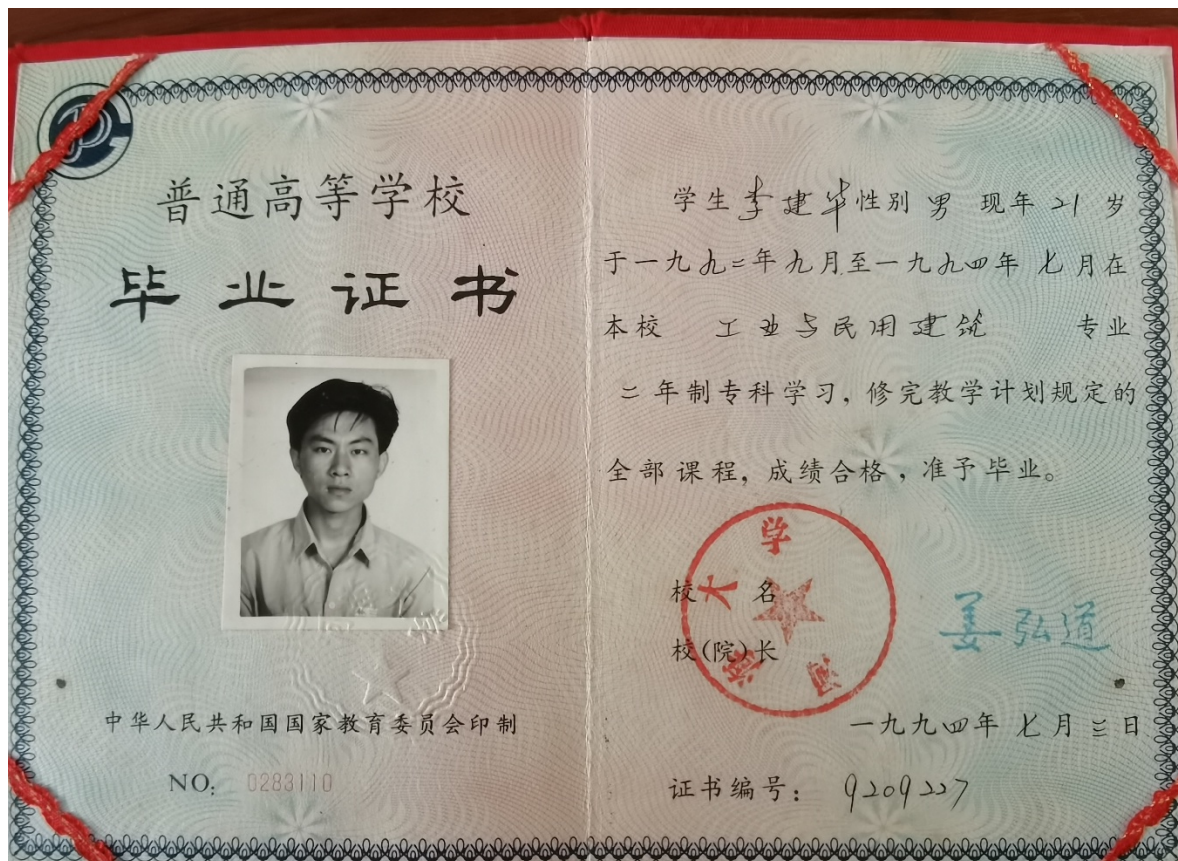 普通高等学校
毕业证书
中华人民共和国国家教育委员会印制
NO: 0283110
学生李建华性别男 现年21岁
于一九九二年九月至一九九四年七月在
本校 工业与民用建筑 专业
二年制专科学习，修完教学计划规定的
全部课程，成绩合格，准予毕业。
河海大学
校名
校(院)长 姜弘道
一九九四年七月三日
证书编号：9209227